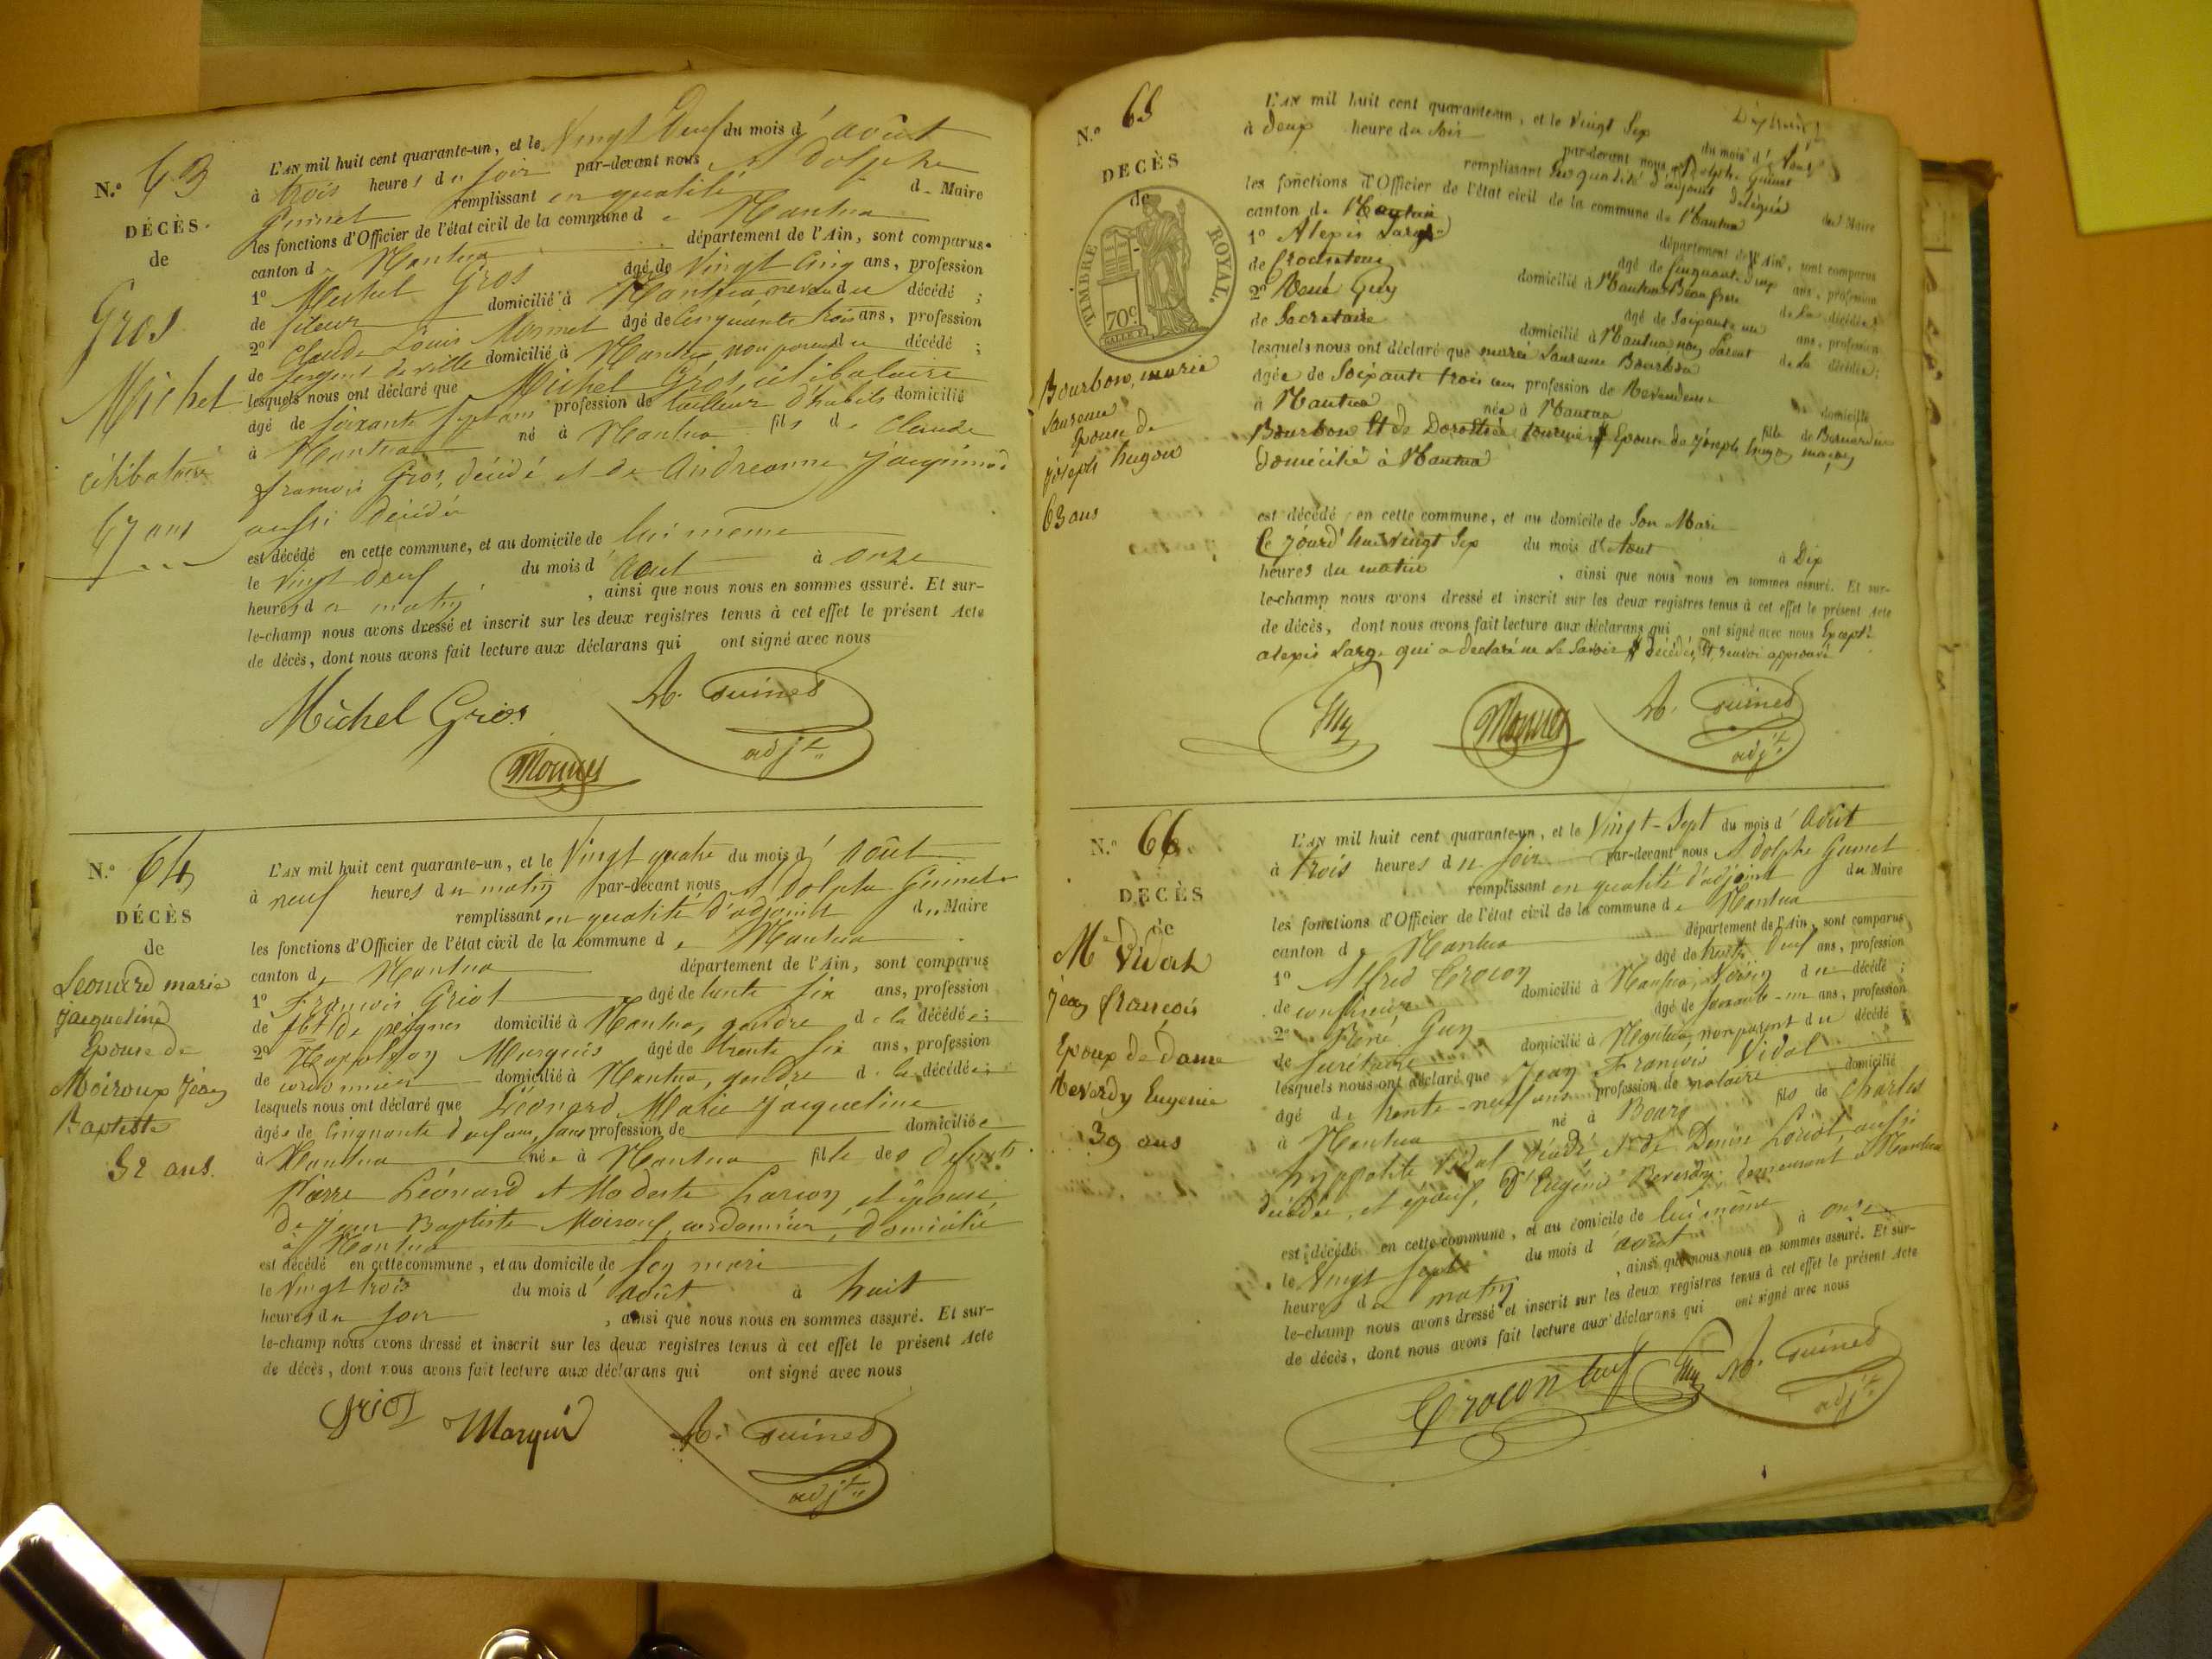 N.° 63
DÉCÈS.
de
Gros
Michel
célibataire
67 ans
L'AN mil huit cent quarante-un, et le Vingt deux du mois d' août
à trois heures du soir par-devant nous Adolphe
Guinet remplissant en qualité d. Maire
les fonctions d'Officier de l'état civil de la commune de Nantua
canton de Nantua département de l'Ain, sont comparus
1° Michel Gros âgé de Vingt cinq ans, profession
de fileur domicilié à Nantua neveu du décédé ;
2° Claude Louis Monnet âgé de Cinquante trois ans, profession
de sergent de ville domicilié à Nantua, non parent du décédé ;
lesquels nous ont déclaré que Michel Gros, célibataire
âgé de soixante sept ans profession de tailleur d'habits domicilié
à Nantua né à Nantua fils de Claude
françois Gros, décédé et de Andréanne
aussi décédée
est décédé en cette commune, et au domicile de lui même
le vingt deux du mois d' Aout à onze
heures du matin , ainsi que nous nous en sommes assuré. Et sur-
le-champ nous avons dressé et inscrit sur les deux registres tenus à cet effet le présent Acte
de décès, dont nous avons fait lecture aux déclarans qui ont signé avec nous
Michel Gros A. Guinet
adjt
Monnet
N.° 64
DÉCÈS
de
Leonard marie
jacqueline
Epouse de
Moiroux jean
Baptiste
52 ans.
L'AN mil huit cent quarante-un, et le Vingt quatre du mois d' Août
à neuf heures du matin par-devant nous Adolphe Guinet
remplissant en qualité d'adjoint du Maire
les fonctions d'Officier de l'état civil de la commune de Nantua
canton de Nantua département de l'Ain, sont comparus
1° François Griot âgé de trente six ans, profession
de fbt de peignes domicilié à Nantua, gendre de la décédée ;
2° Napoléon Marquis âgé de trente six ans, profession
de cordonnier domicilié à Nantua, gendre de la décédée ;
lesquels nous ont déclaré que Léonard Marie Jacqueline
âgée de Cinquante deux ans, sans profession de domiciliée
à Nantua née à Nantua fille des défunts
Pierre Léonard et Modeste , et épouse
de Jean Baptiste Moiroux, cordonnier, domicilié
à Nantua
est décédé en cette commune, et au domicile de son mari
le Vingt trois du mois d' août à huit
heures du soir , ainsi que nous nous en sommes assuré. Et sur-
le-champ nous avons dressé et inscrit sur les deux registres tenus à cet effet le présent Acte
de décès, dont nous avons fait lecture aux déclarans qui ont signé avec nous
Griot Marquis A. Guinet
adjt
N.° 65
DÉCÈS
de
TIMBRE ROYAL.
70c
Bourbon, marie
laurence
Epouse de
joseph hugon
63 ans
L'AN mil huit cent quarante-un, et le Vingt Six du mois d' Aout
à deux heure du Soir par-devant nous Adolphe Guinet
remplissant en qualité d'adjoint délégué du Maire
les fonctions d'Officier de l'état civil de la commune de Nantua
canton de Nantua département de l'Ain, sont comparus
1° Alexis Large âgé de Cinquante ans, profession
de domicilié à Nantua Beau frere de la décédée ;
2° René Guy âgé de Soixante un ans, profession
de Secretaire domicilié à Nantua non Parent de la décédée ;
lesquels nous ont déclaré que marie Laurence Bourbon
âgée de Soixante trois ans profession de Revendeuse domicilié
à Nantua née à Nantua fille de Bernardin
Bourbon et de Dorothée Epouse de Joseph hugon maçon
domicilié à Nantua
est décédé en cette commune, et au domicile de Son Mari
Ce jourd'hui vingt Six du mois d'Aout à Dix
heures du matin , ainsi que nous nous en sommes assuré. Et sur-
le-champ nous avons dressé et inscrit sur les deux registres tenus à cet effet le présent Acte
de décès, dont nous avons fait lecture aux déclarans qui ont signé avec nous Excepté
alexis Large qui a declaré ne Le Savoir décédés, renvoi approuvé
Guy Monnet A. Guinet
adjt
N.° 66
DÉCÈS
de
Me Vidal
jean françois
Epoux de dame
Reverdy Eugenie
39 ans
L'AN mil huit cent quarante-un, et le Vingt-Sept du mois d' Août
à trois heures du soir par-devant nous Adolphe Guinet
remplissant en qualité d'adjoint du Maire
les fonctions d'Officier de l'état civil de la commune de Nantua
canton de Nantua département de l'Ain, sont comparus
1° Alfred Crocon âgé de trente deux ans, profession
de domicilié à Nantua, voisin du décédé ;
2° René Guy âgé de soixante-un ans, profession
de Secrétaire domicilié à Nantua, non parent du décédé ;
lesquels nous ont déclaré que Jean François Vidal
âgé de trente-neuf ans profession de notaire domicilié
à Nantua né à Bourg fils de Charles
hyppolite Vidal décédé et de Denise Loriot aussi
décédée, et époux, d'Eugénie Reverdy demeurant à Nantua
est décédé en cette commune, et au domicile de lui même
le Vingt sept du mois d' août à onze
heures du matin , ainsi que nous nous en sommes assuré. Et sur-
le-champ nous avons dressé et inscrit sur les deux registres tenus à cet effet le présent Acte
de décès, dont nous avons fait lecture aux déclarans qui ont signé avec nous
Crocon Guy A. Guinet
adjt